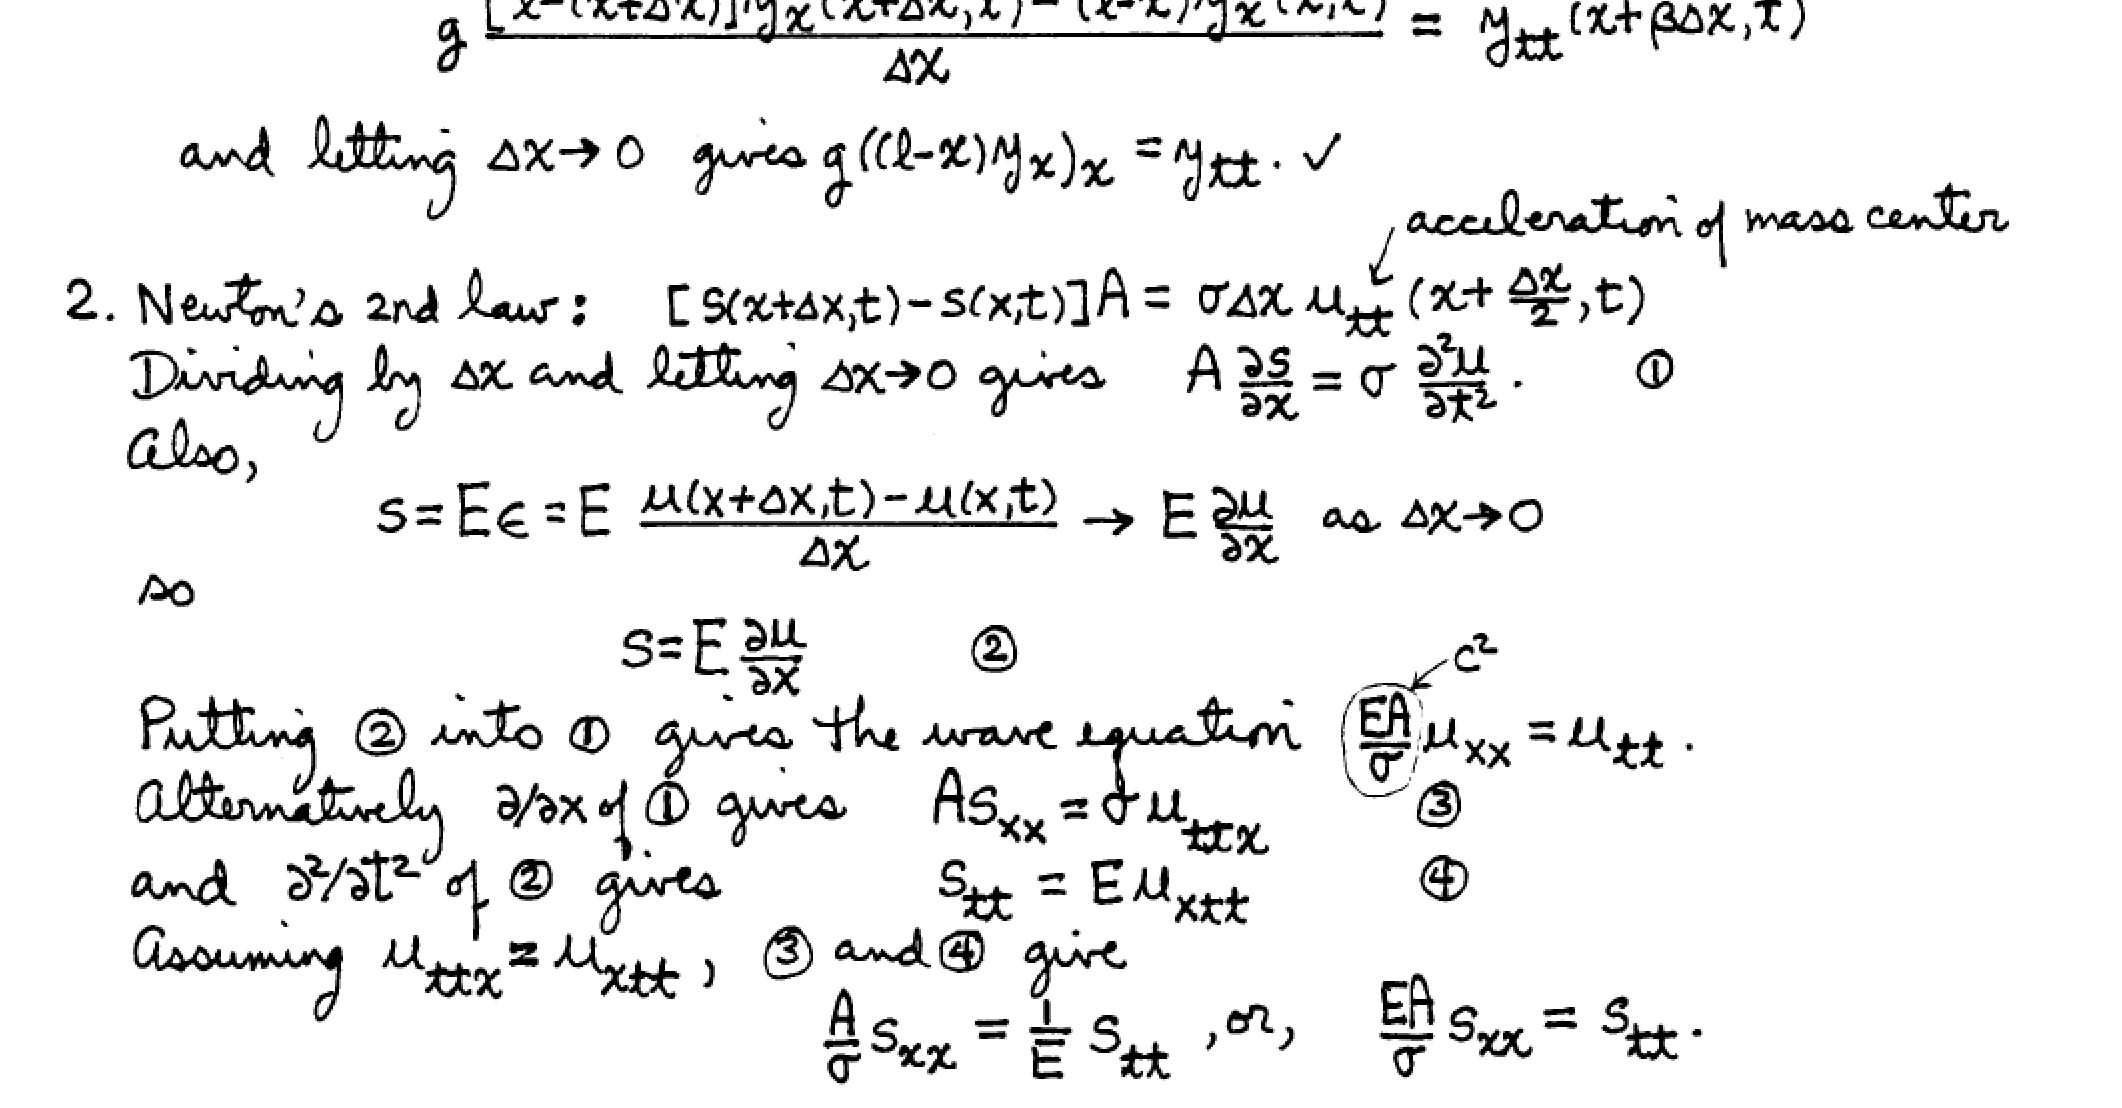 g [l-(x+Δx)]y_x(x+Δx,t) - (l-x)y_x(x,t) / Δx = y_tt(x+βΔx,t)
and letting Δx→0 gives g((l-x)y_x)_x = y_tt. ✓
acceleration of mass center
2. Newton's 2nd law: [s(x+Δx,t)-s(x,t)]A = σΔx u_tt(x+Δx/2,t)
Dividing by Δx and letting Δx→0 gives A ∂s/∂x = σ ∂²u/∂t². ①
Also,
s=Eε=E u(x+Δx,t)-u(x,t) / Δx → E ∂u/∂x as Δx→0
so
s=E ∂u/∂x ②
c²
Putting ② into ① gives the wave equation EA/σ u_xx = u_tt.
Alternatively ∂/∂x of ① gives As_xx = σu_ttx ③
and ∂²/∂t² of ② gives s_tt = Eu_xtt ④
Assuming u_ttx = u_xtt, ③ and ④ give
A/σ s_xx = 1/E s_tt, or, EA/σ s_xx = s_tt.